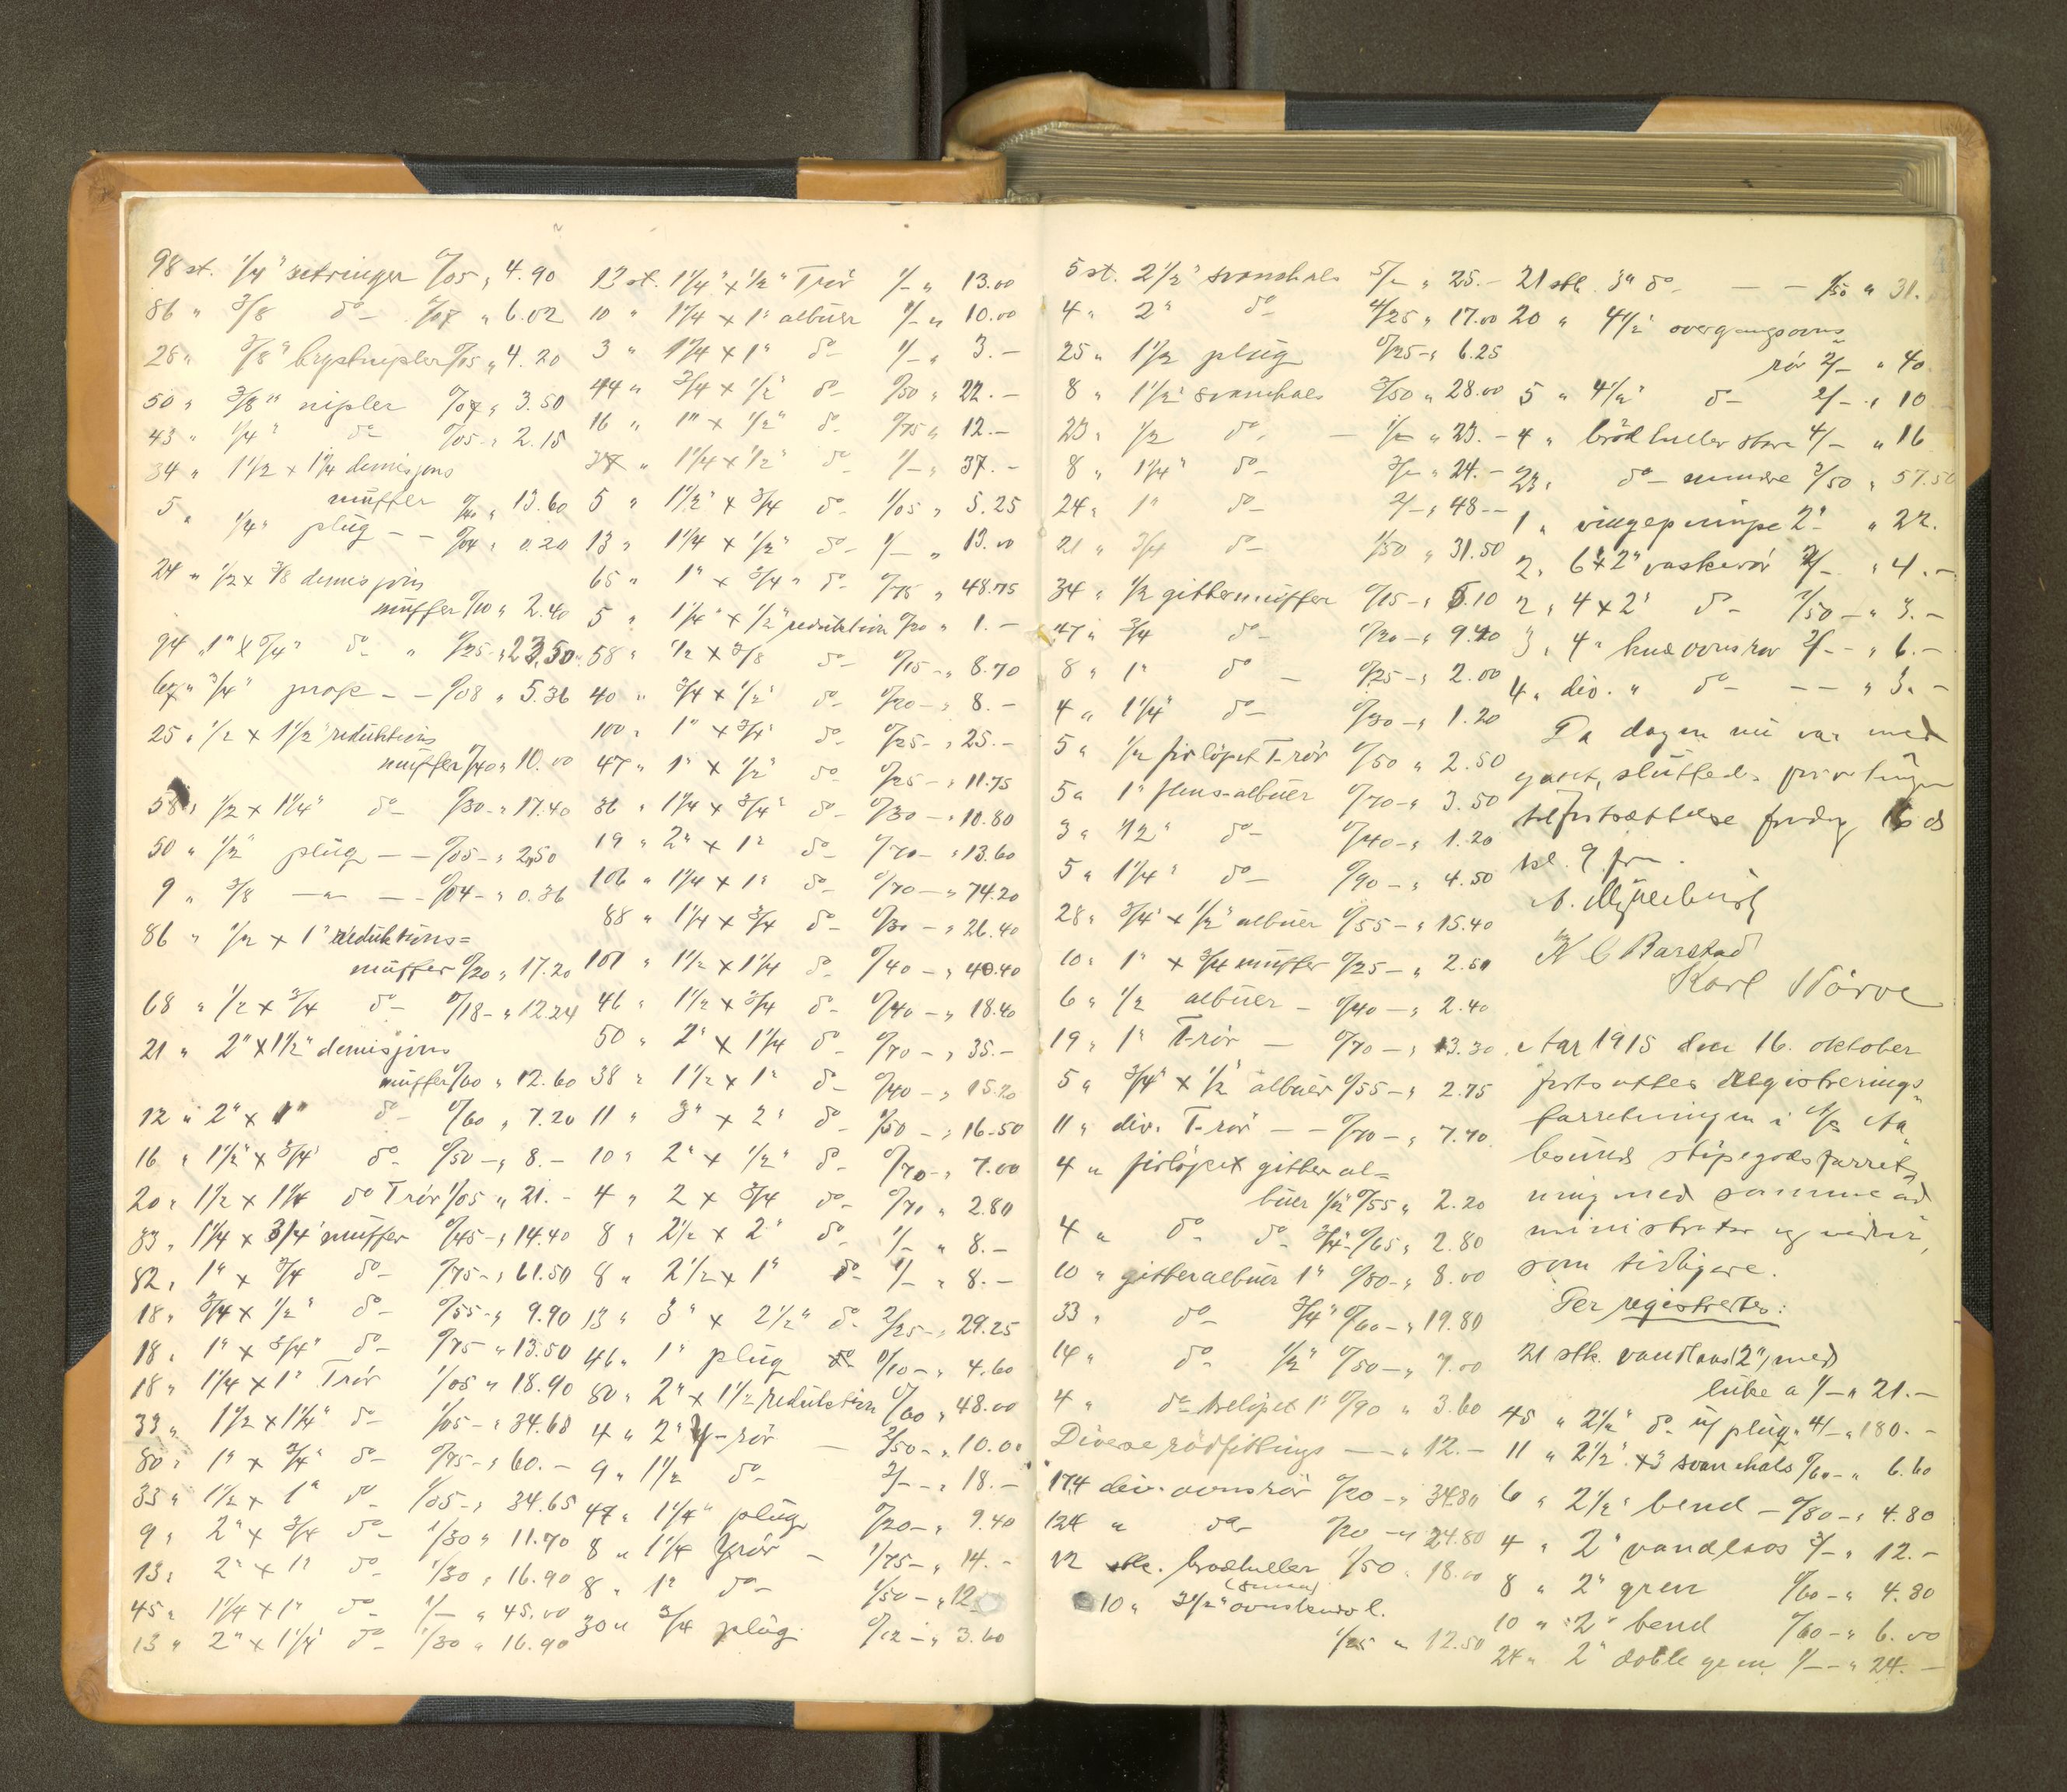 98 st. 1/4" setringer 0/05 " 4.90
86 " 3/8 do - 0/07 " 6.02
28 " 3/8" brystnipler 0/15 " 4.20
50 " 3/8" nipler 0/07 " 3.50
43 " 1/4" do - 0/05 - " 2.15
34 " 1 1/2 x 1 1/4 demisjons
muffer 0/40 " 13.60
5 " 1/4" plug - - 0/04 " 0.20
24 " 1/2 x 3/8 demisjons
muffer 0/10 " 2.40
94 " 1" x 3/4" do - " 0/25 - " 23.50
67 " 3/4" prop - - 0/08 " 5.36
25 " 1/2 x 1 1/2" reduktions
muffer 0/40 " 10.00
58 " 1/2 x 1 1/4" do - 0/30 - " 17.40
50 " 1/2" plug - - 0/05 - " 2.50
9 " 3/8 - " - - 0/04 - " 0.36
86 " 1/2 x 1" reduktions=
muffer 0/20 " 17.20
68 " 1/2 x 3/4 do - 0/18 - " 12.24
21 " 2" x 1 1/2" demisjons
muffer 0/60 " 12.60
12 " 2" x 1" do - 0/60 " 7.20
16 " 1 1/2" x 3/4" do - 0/50 - " 8. -
20 " 1 1/2 x 1 1/4 do Trör 1/05 " 21. -
33 " 1 1/4 x 3/4" muffer 0/45 - " 14.40
82 " 1" x 3/4 do - 0/75 - " 61.50
18 " 3/4 x 1/2" do - 0/55 - " 9.90
18 " 1" x 3/4" do - 0/75 " 13.50
18 " 1 1/4 x 1" Trör 1/05 " 18.90
33 " 1 1/2 x 1 1/4" do - 1/05 - " 34.68
80 " 1" x 3/4" do - 0/75 - " 60. -
33 " 1 1/2 x 1" do - 1/05 - " 34.65
9 " 2" x 3/4 do - 1/30 " 11.70
13 " 2" x 1" do - 1/30 " 16.90
45 " 1 1/4 x 1" do - 1/- " 45.00
13 " 2" x 1 1/4" do - 1/30 " 16.90
13 st. 1 1/4" x 1/2" Trör 1/- " 13.00
10 " 1 1/4 x 1" albuer 1/- " 10.00
3 " 1 1/4 x 1" do - 1/- " 3. -
44 " 3/4 x 1/2" do - 0/50 " 22. -
16 " 1" x 1/2" do - 0/75 " 12. -
37 " 1 1/4 x 1/2" do - 1/- " 37. -
5 " 1 1/2" x 3/4 do - 1/05 " 5.25
13 " 1 1/4 x 1/2" do - 1/- " 13.00
65 " 1" x 3/4" do - 0/75 " 48.75
5 " 1/4" x 1/2" reduktion 0/20 " 1. -
58 " 1/2 x 3/8 do - 0/15 - " 8.70
40 " 3/4 x 1/2" do - 0/20 - " 8. -
100 " 1" x 3/4" do - 0/25 - " 25. -
47 " 1" x 1/2" do - 0/25 - " 11.75
36 " 1 1/4 x 3/4" do - 0/30 - " 10.80
19 " 2" x 1" do - 0/70 - " 13.60
106 " 1 1/4 x 1" do - 0/70 - " 74.20
88 " 1 1/4 x 3/4 do - 0/30 - " 26.40
101 " 1 1/2 x 1 1/4 do - 0/40 - " 40.40
46 " 1 1/2 x 3/4 do - 0/40 - " 18.40
50 " 2" x 1 1/4 do - 0/70 - " 35. -
38 " 1 1/2 x 1" do - 0/40 - " 15.20
11 " 3" x 2" do - 1/50 - " 16.50
10 " 2" x 1/2" do - 0/70 - " 7.00
4 " 2 x 3/4 do - 0/70 " 2.80
8 " 2 1/2 x 2" do - 1/- " 8. -
8 " 2 1/2 x 1" do - 1/- " 8. -
13 " 3" x 2 1/2" do - 2/25 - " 29.25
46 " 1" plug do - 0/10 - " 4.60
80 " 2" x 1 1/2 reduktion 0/60 " 48.00
4 " 2" Y-rör - 2/50 - " 10.00
9 " 1 1/2 do - 2/- - " 18. -
47 " 1 1/4" plug 0/20 - " 9.40
8 " 1 1/4 Yrör - 1/75 - " 14. -
8 " 1" do - 1/50 - " 12.
30 " 3/4 plug 0/12 - " 3.60
5 st. 2 1/2" svanehals 5/- " 25. -
4 " 2" do 4/25 " 17.00
25 " 1 1/2 plug 0/25 - " 6.25
8 " 1 1/2" svanehals 3/50 " 28.00
23 " 1/2 do - - 1/- " 23. -
8 " 1 1/4" do - 3/- " 24. -
24 " 1" do - 2/- " 48 - -
21 " 3/4 do - 1/50 " 31.50
34 " 1/2 gittermuffer 0/15 - " 5.10
47 " 3/4 do - 0/20 - " 9.40
8 " 1" do - 0/25 - " 2.00
4 " 1 1/4" do - 0/30 - " 1.20
5 " 1/2 firlöpet T-rör 0/50 " 2.50
5 " 1" flens-albuer 0/70 - " 3.50
3 " 1/2" do - 0/40 - " 1.20
5 " 1 1/4" do - 0/90 - " 4.50
28 " 3/4" x 1/2" albuer 0/55 - " 15.40
10 " 1" x 3/4 muffer 0/25 - " 2.50
6 " 1/2 albuer - 0/40 - " 2.40
19 " 1" T-rör - 0/70 - " 13.30
5 " 3/4" x 1/2" albuer 0/55 - " 2.75
11 " div. T-rör - - 0/70 - " 7.70
4 " firlöpet gitter al=
buer 1/2" 0/55 " 2.20
4 " do - do - 3/4" 0/65 " 2.80
10 " gitteralbuer 1" 0/80 - " 8.00
33 " do - 3/4" 0/60 - " 19.80
14 " do - 1/2" 0/50 - " 7.00
4 " do - trelöpet 1" 0/90 " 3.60
Diverse rödfittings - - " 12. -
174 div. ovnsrör 0/20 - " 34.80
124 " do - 0/20 - " 24.80
12 stk. brødheller 1/50 " 18.00
(smaa)
10 " 3 1/2" 
1/25 " 12.50
21 stk 3" do - - - 1/50 " 31.
20 " 4 1/2" overgangsovns
rör 2/- " 40.
5 " 4 1/2" do - 2/- " 10
4 " brødheller store 4/- " 16
23 " do - mindre 2/50 " 57.50
1 " vingepumpe 2" - " 22.
2 " 6 x 2" vaskerör 2/- " 4. -
2 " 4 x 2" do - 1/50 - " 3. -
3 " 4" knæ ovnsrør 2/- - " 6. -
4 " div. " do - - - " 3. -
Da dagen nu var med
gaat, sluttedes forretningen
til fortsættelse fredag 16 ds
kl. 9 fm.
N C Barstad
Karl Nörve
Aar 1915 den 16. oktober
fortsattes registrerings"
forretningen i A/S Aa"
lesunds stöpegodsforret=
ning med samme ad
ministrator og vidner,
som tidligere.
Der registrertes:
21 stk. vandlaas 2", med
luke a 1/- " 21. -
45 " 2 1/2" do u/ plug " 4/- " 180. -
11 " 2 1/2" x 3" svanehals 0/60 - " 6.60
6 " 2 1/2" bend - 0/80 - " 4.80
4 " 2" vandlaas 3/- " 12. -
8 " 2" gren 0/60 - " 4.80
10 " 2" bend 0/60 - " 6.00
24 " 2" doble gren 1/- - " 24. -